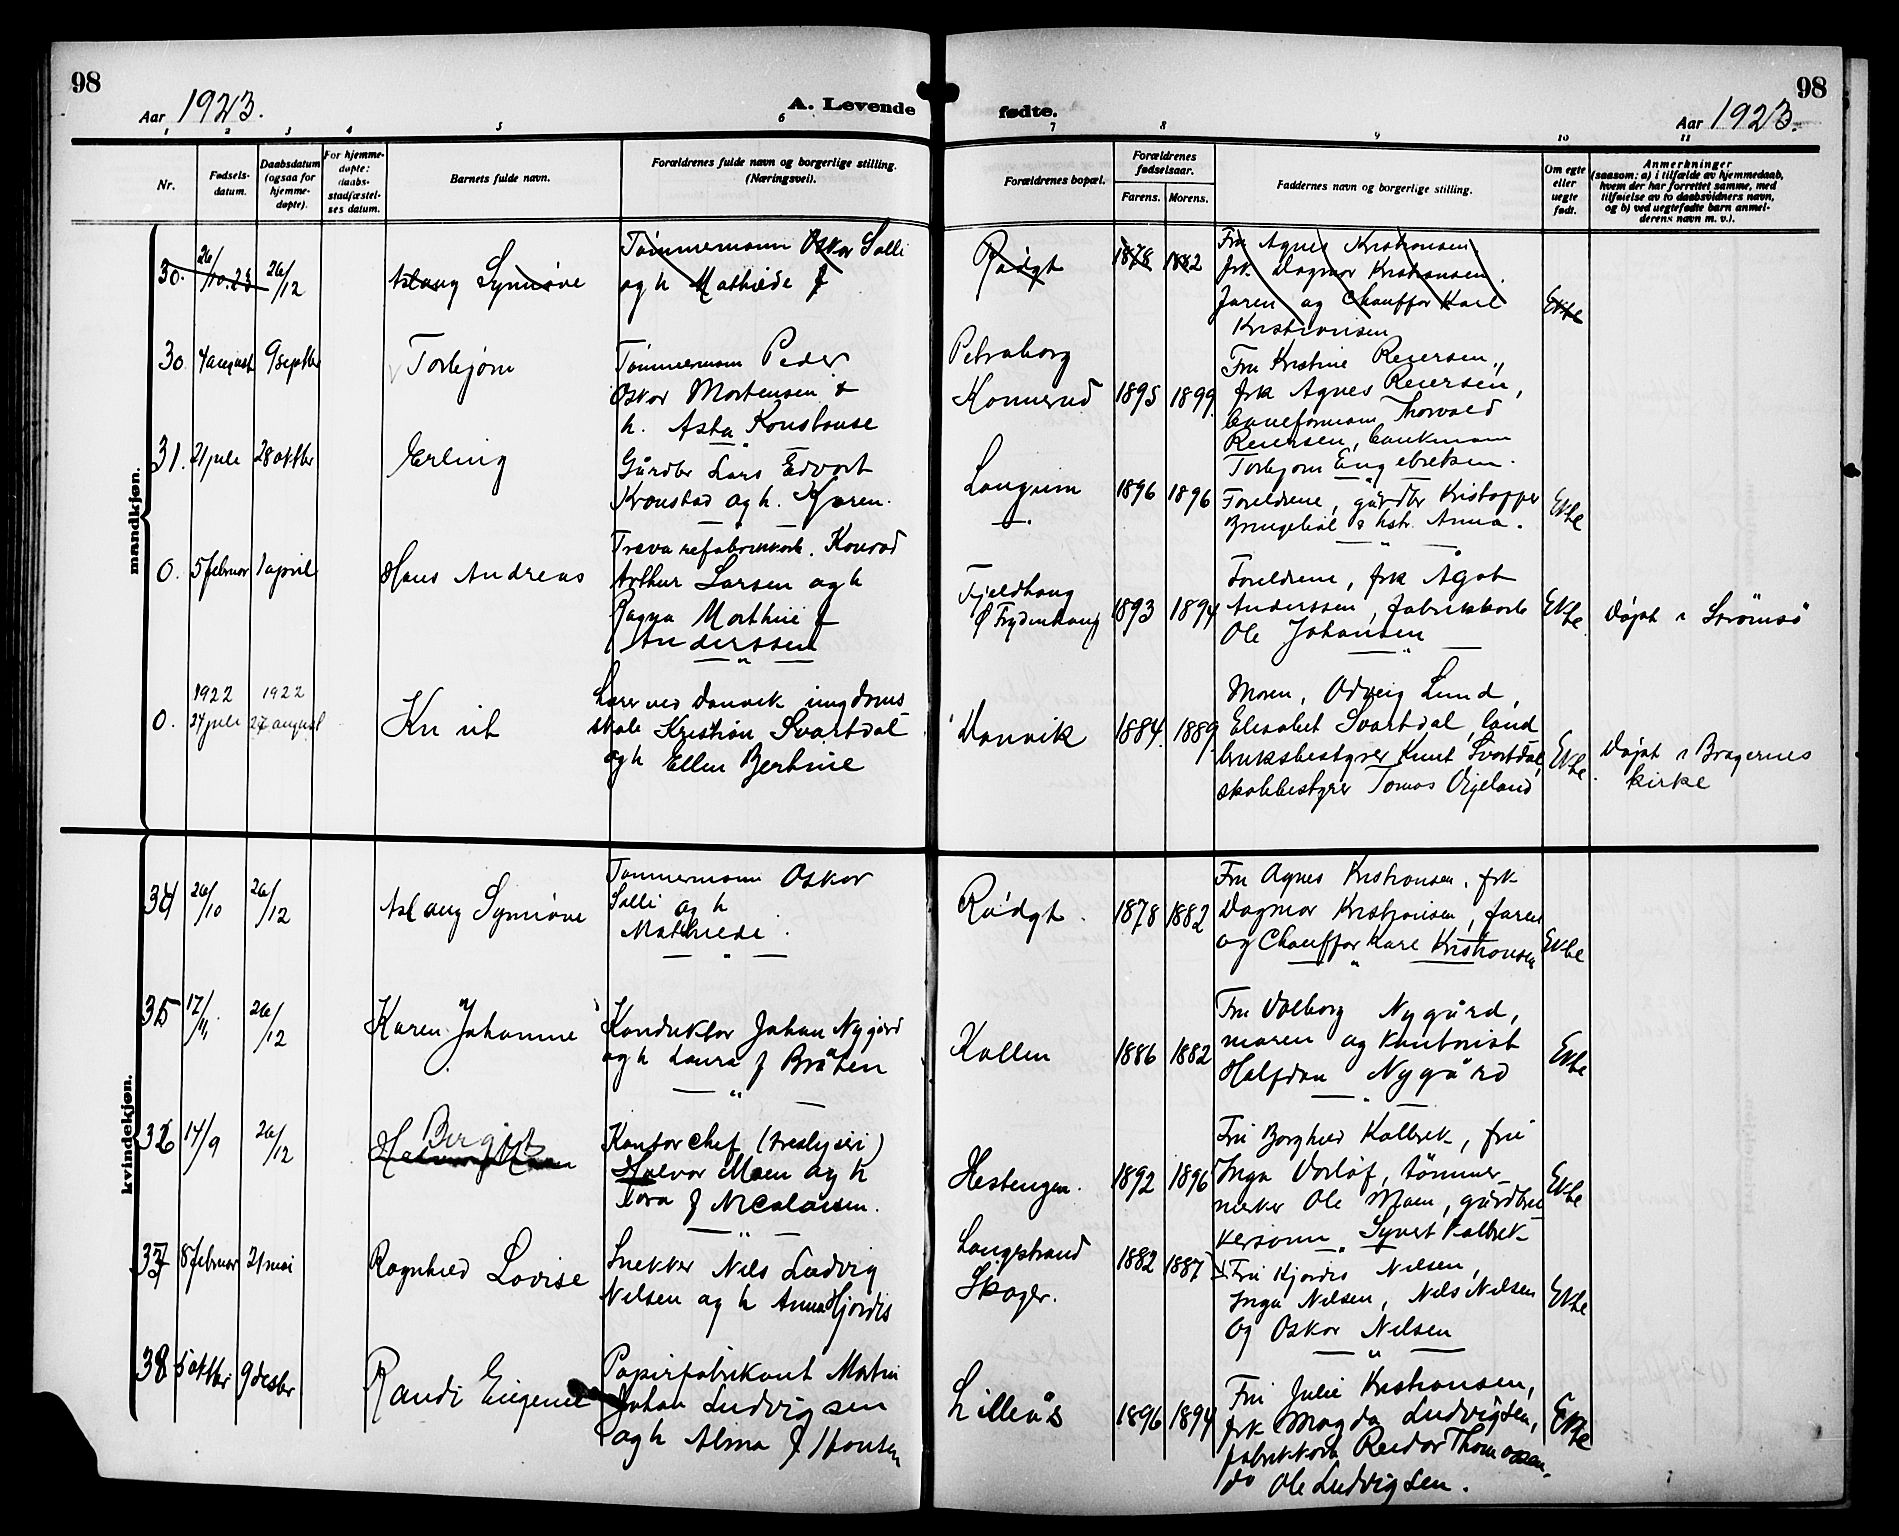 98
98
Aar 1923.
A. Levende
fødte.
Aar 1923.
1 2 3 4 5 6 7 8 9 10 11
Nr.
Fødsels-
datum.
Daabsdatum
(ogsaa for
hjemme-
døpte).
For hjemme-
døpte:
daabs-
stadfæstel-
ses datum.
Barnets fulde navn.
Forældrenes fulde navn og borgerlige stilling.
(Næringsvei).
Forældrenes bopæl.
Forældrenes
fødselsaar.
Farens. Morens.
Faddernes navn og borgerlige stilling.
Om egte
eller
uegte
født.
Anmerkninger
(saasom: a) i tilfælde av hjemmedaab,
hvem der har forrettet samme, med
tilføielse av to daabsvidners navn,
og b) ved uegtefødte barn anmel-
derens navn m. v.).
mandkjøn.
30. 26/10.23 26/12 Aslaug Synnøve
Tømmermann Oskar Solli
og h Mathilde f
Rødgt 1878 1882
Fru Agnes Kristiansen
frk. Dagmar Kristiansen.
faren og Chauffør Karl
Kristiansen
Ekte
30. 4 august 9 septbr Torbjørn
Tømmermann Peder
Oskar Mortensen &
h. Asta Konstanse
Petraborg
Konnerud 1895 1899
Fru Kristine Reiersen,
frk Agnes Reiersen,
baneformann Thorvald
Reiersen, bankmann
Torbjørn Engebretsen.
31. 21 juli 28 oktbr Erling
Gårdbr Lars Edvart
Kronstad og h. Karen.
Langum 1896 1896
Foreldrene, gårdbr Kristoffer
hstr. Anna.
Ekte
0. 5 februar 1 april Hans Andreas
Konrad
Arthur Larsen og h
Ragna Marthine f
Anderssen
Fjeldhaug
Ø Frydenhaug 1893 1894
Foreldrene, frk Ågot
Anderssen, fabrikkarb
Ole Johansen
Ekte
Døpt i Strømsø
0. 1922 24 juli 1922 27 august Knut
Lærer ved Danvik ungdoms-
skole Kristian Svartdal
og h Ellen Bertine
Danvik 1884. 1889
Moren, Odveig Lund,
Elisabet Svartdal, land
bruksbestyrer Knut Svartdal,
skolebestyrer Tomas Vigeland
Ekte
Døpt i Bragernes
kirke
kvindekjøn.
34 26/10 26/12 Aslaug Synnøve
Tømmermann Oskar
Solli og h
Mathilde.
Rødgt. 1878 1882
Fru Agnes Kristiansen, frk
Dagmar Kristiansen, faren
og Chauffør Karl Kristiansen
Ekte
35 17/11 26/12 Karen Johanne
Konduktør Johan Nygård
og h Laura f Bråten
Kollen 1886 1882
Fru Valborg Nygård,
moren og kontorist
Halfdan Nygård
Ekte
36 14/9 26/12 Bergjot
Kontorchef (tresliperi)
Halvor Moen og h
Tora f Nicolaisen.
Hestengen. 1892 1896
Fru Borghild Kolbrek, fru
Inga Varlöf, tømmer-
merker Ole Moen, gårdbru
kersønn Syvert Kolbrek
Ekte
37 8 februar 21 mai Ragnhild Lovise
Snekker Nils Ludvig
Nilsen og h Anna Hjørdis
Langstrand
Skoger. 1882 1887
Fru Hjørdis Nilsen,
Inga Nilsen, Nils Nilsen
og Oskar Nilsen
Ekte
38 5 oktbr 9 desbr Randi Eugenie
Papirfabrikant Martin
Johan Ludvigsen
og h Alma f Hansen
Lilleås 1896 1894
Fru Julie Kristiansen,
frk Magda Ludvigsen,
fabrikkarb Reidar Thomassen,
do Ole Ludvigsen.
Ekte